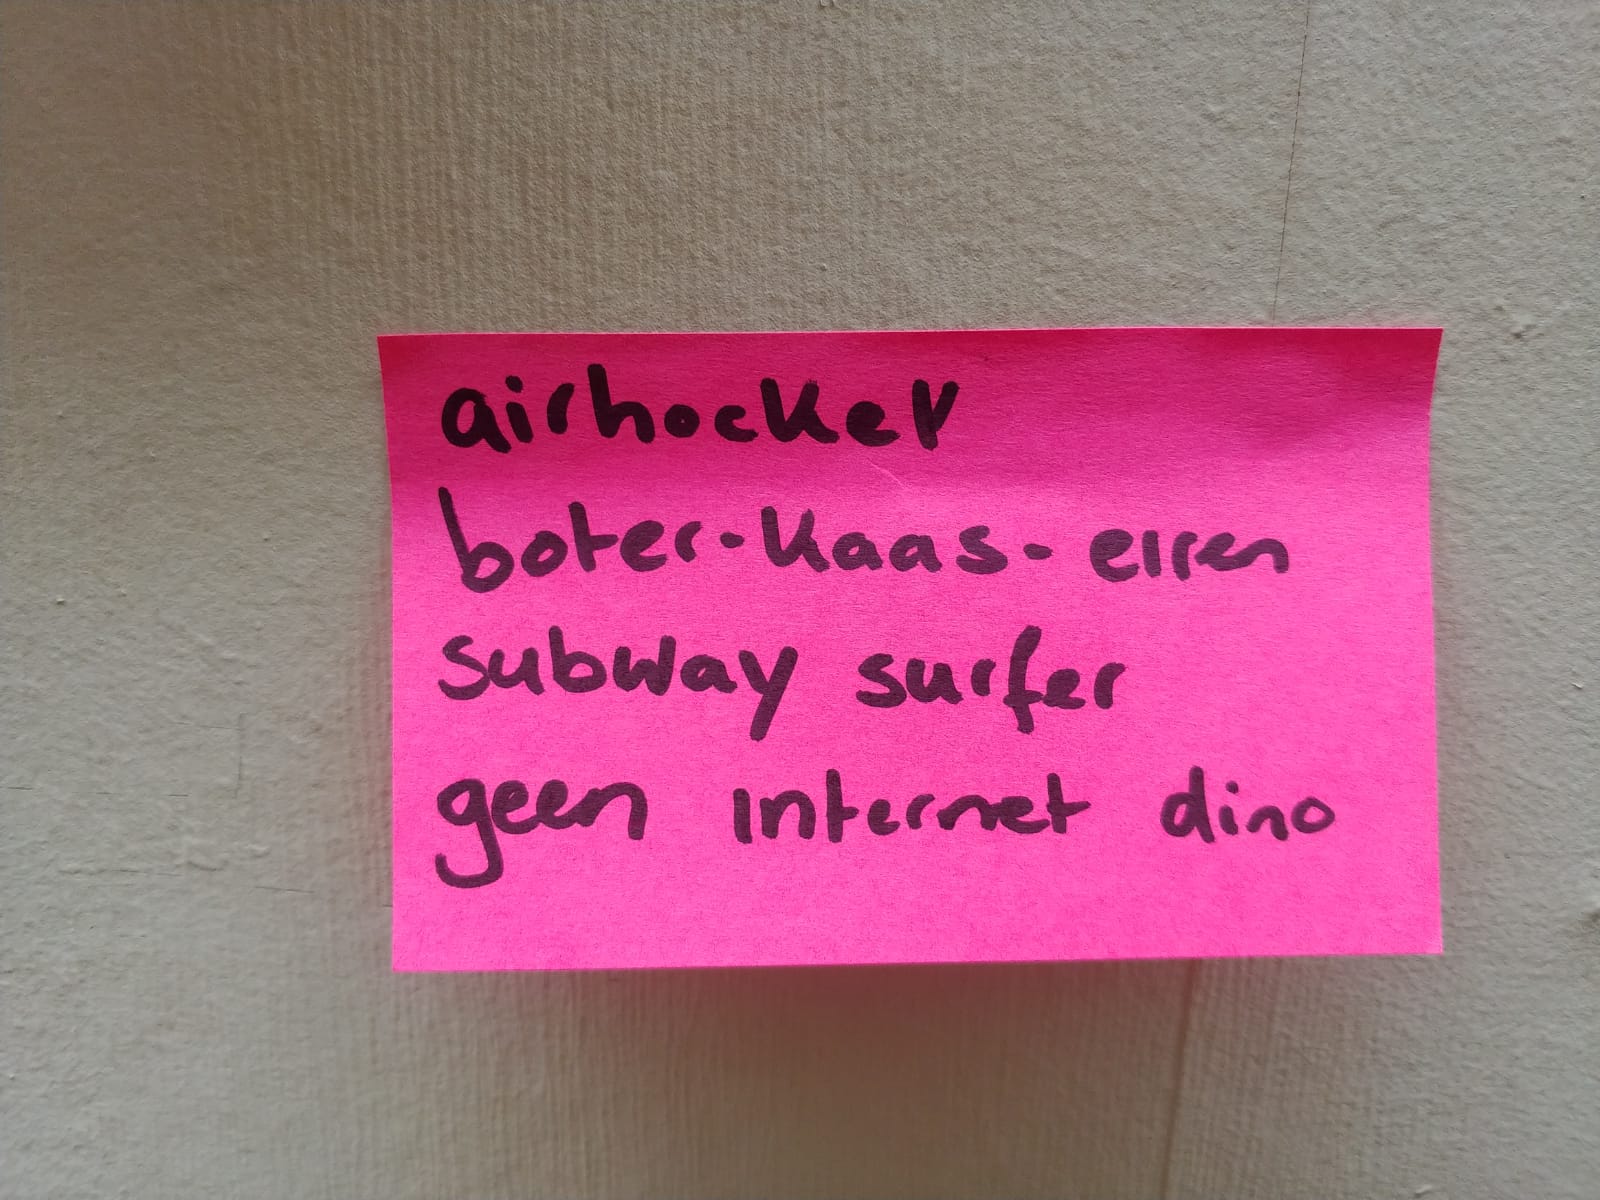 airhockey
boter-kaas-eiren
subway surfer
geen internet dino